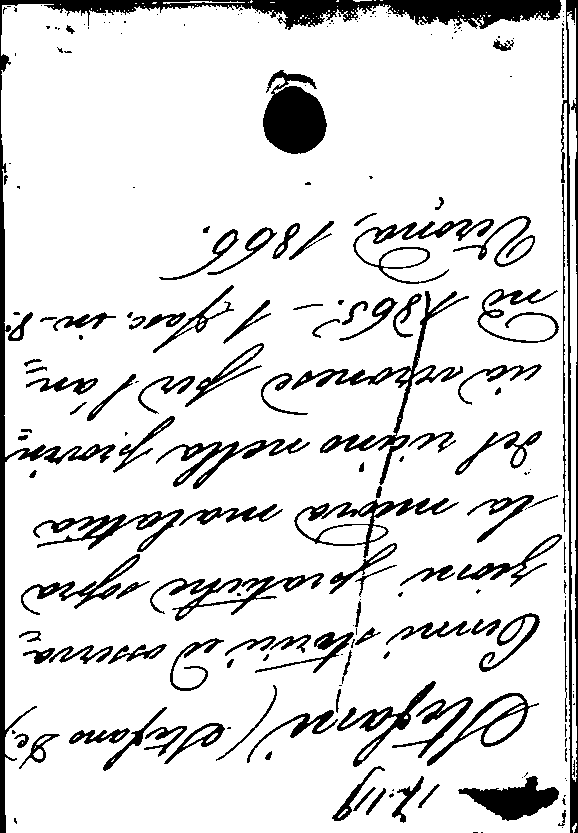 17.119
Stefani (Stefano De)
Cenni storici ed osserva=
zioni pratiche sopra
la nuova malattia
del ricino nella provin=
cia veronese per l'an=
no 1865. - 1 fasc. in-8.
Verona, 1866.